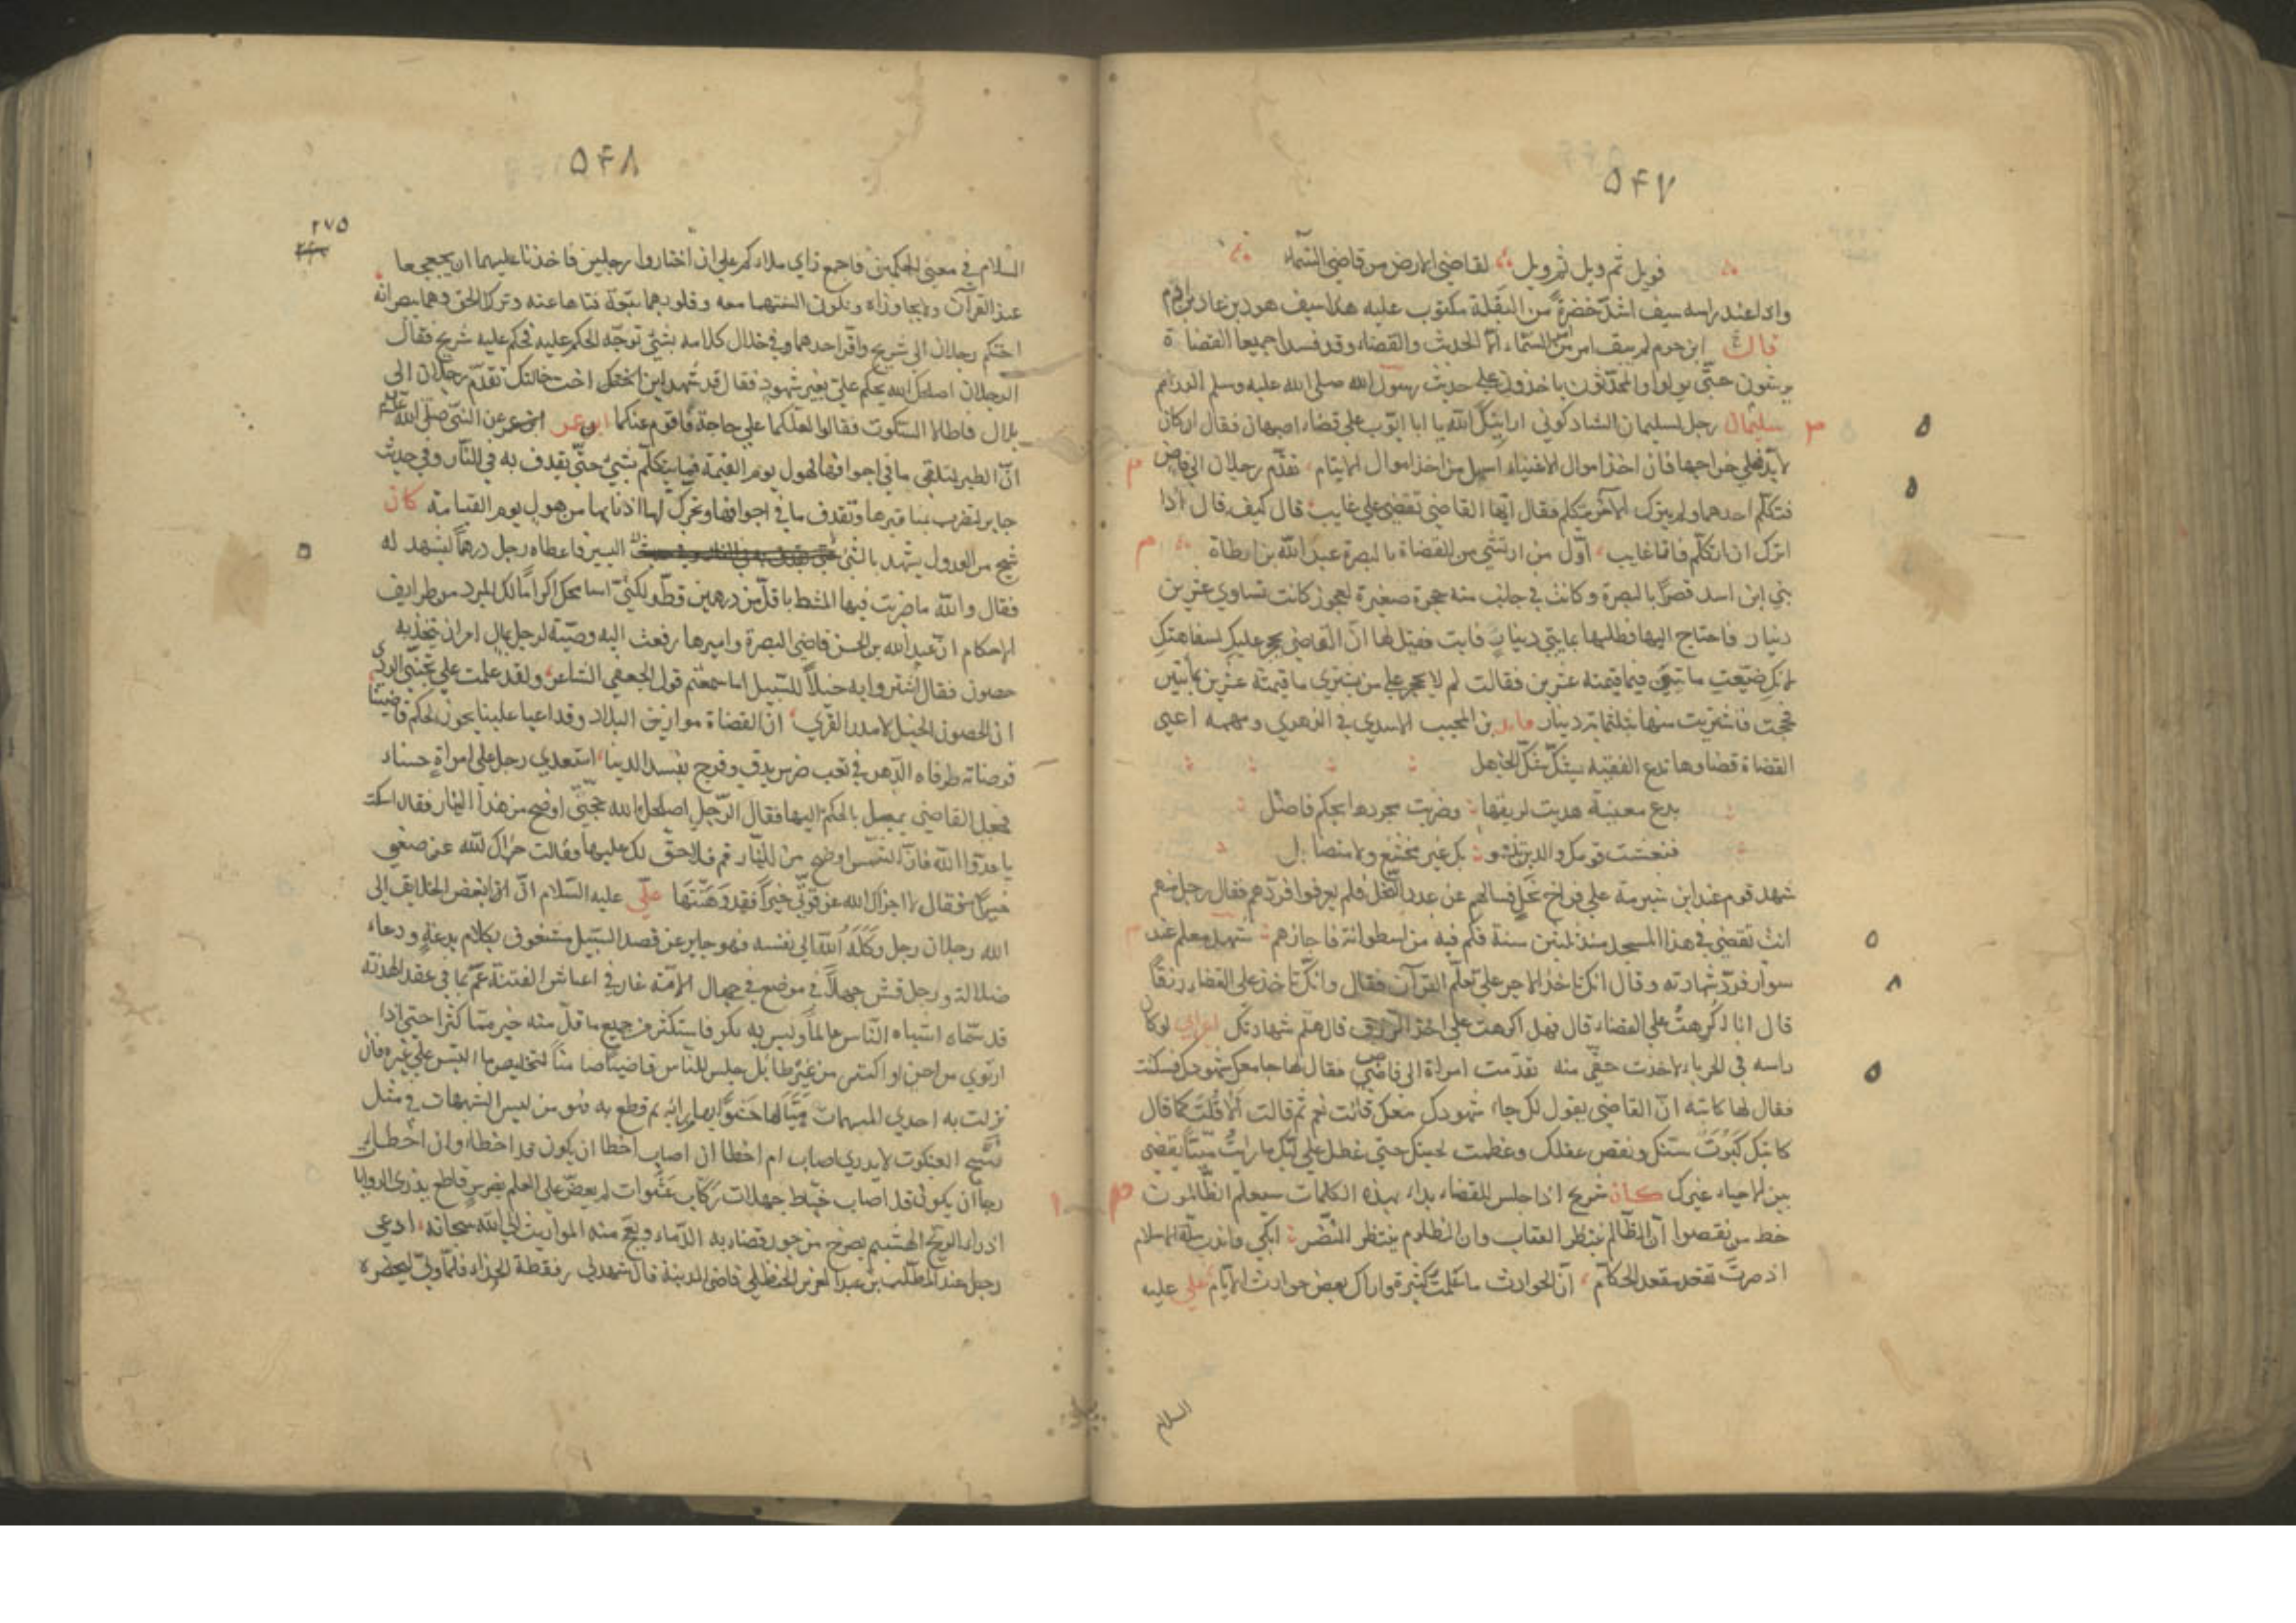 ۵۴۷
فويل ثم ويل ثم ويل لقاضي الارض من قاضي السماء
واذا عند راسه سيف اشد خضرة من البقلة مكتوب عليه هذا سيف هود بن عاد بن ارم
قال ابن حزم لم يبق امر من السماء الا الحديث والقضاء وقد فسدا جميعا القضاة
يرشون حتى يولوا والمحدثون ياخذون على حديث رسول الله صلى الله عليه وسلم الدراهم
سليمان رجل لسليمان الشاذكوني ارانيك الله يا ابا ايوب على قضاء اصبهان فقال ان كان
لا بد فعلى خراجها فان اخذ اموال الاغنياء اسهل من اخذ اموال الايتام تقدم رجلان الى قاض
فتكلم احدهما ولم يترك الآخر يتكلم فقال ايها القاضي تقضي على غايب قال كيف قال اذا
اترك ان اتكلم فانا غايب اول من ارتشى من القضاة بالبصرة عبد الله بن ارطاة
بنى ابن اسد قصرا بالبصرة وكانت في جانب منه حجرة صغيرة لعجوز كانت تساوي عشرين
دينار فاحتاج اليها فطلبها بمايتي دينار فابت فقيل لها ان القاضي يحجر عليك لسفاهتك
لانك ضيعت مائتين فيما قيمته عشرين فقالت لم لا يحجر على من يشتري ما قيمته عشرين بمائتين
فحجت فاشتريت منها بثلثمائة دينار بن المجيب الاسدي في الزهري ومهمه اعيى
القضاة قضاوها تدع الفقيه يشك شك الجاهل
بدع معينة هديت لريقها وضربت مجردها بحكم فاصل
فنعشت قومك والذين بك غير مختشع ولا متضايل
شهد قوم عند ابن شبرمة على قراح نخل فسالهم عن عدد النخل فلم يعرفوا فردهم فقال رجل منهم
انت تقضي في هذا المسجد منذ ثلثين سنة فكم فيه من اسطوانة فاجازهم شهد معلم عند
سوار فرد شهادته وقال انك تاخذ الاجر على تعلم القرآن فقال وانك تاخذ على القضاء رزقا
قال انا اكرهت على القضاء قال فهل اكرهت على اخذ الرزق قال هلم شهادتك اعرابي لو كان
راسه في الحرباء لاخذت حقي منه تقدمت امراة الى قاضي فقال لها جامعك شهودك فسكتت
فقال لها كاتبه ان القاضي يقول لك جاء شهودك معك قالت نعم ثم قالت الا قلت كما قال
كاتبك كبرت سنك ونقص عقلك وعظمت لحيتك حتى غطل على لبك ما رايت ميتا يقضي
بين الاحياء غيرك كان شريح اذا جلس للقضاء بداء بهذه الكلمات سيعلم الظالمون
حظ من نقصوا ان الظالم ينتظر العقاب وان المظلوم ينتظر النصر ابكي واندب ملة الاسلام
اذ صرت تقعد مقعد الحكام ان الحوادث ما علمت كثيرة واراك بعض حوادث الايام علي عليه
السلام
۵۴۸
۲۷۵
السلام في معنى الحكمين فاجمع راي ملاءكم على ان اختاروا رجلين فاخذنا عليهما ان يجعجعا
عند القرآن ولا يجاوزاه وتكون السنتهما معه وقلوبهما تبعه فتاها عنه وتركا الحق وهما يبصرانه
احتكم رجلان الى شريح واقر احدهما في خلال كلامه بشئ توجه الحكم عليه فحكم عليه شريح فقال
الرجلان اصلحك الله يحكم علي بغير شهود فقال قد شهد ابن اخت خالتك تقدم رجلان الى
بلال فاطالا السكوت فقالوا لعلكما على حاجة فاقوم عنكما ابن عمر عن النبي صلى الله
ان الطير لتلقي ما في اجوافها لهول يوم القيمة فما يتكلم بشئ حتى يقذف به في النار وفي حديث
جابر لتضرب بمناقيرها وتقذف ما في اجوافها وتحرك لها اذنابها من هول يوم القيامة كان
شيخ من العدول يشهد بالشئ اليسير فاعطاه رجل درهما ليشهد له
فقال والله ما ضربت فيها المشط باقل من درهمين قط لكني اسامحك اكراما لك المبرد من طرايف
الاحكام ان عبد الله بن الحسن قاضي البصرة واميرها رفعت اليه وصية لرجل بمال امر ان يتخذ به
حصون فقال اشتروا به خيلا للسبيل اما سمعتم قول الجعفي الشاعر ولقد علمت على تجنبي الردى
ان الحصون الخيل لا مدر القرى ان القضاة موازين البلاد وقد اعيا علينا بجور الحكم قاضينا
قد صناته طرفاه الدهر في تعب ضرس يدق وفرج يفسد الدينا استعدى رجل على امراة حسناء
فجعل القاضي يميل بالحكم اليها فقال الرجل اصلحك الله حجتي اوضح من هذا النهار فقال اسكت
يا عدو الله فان الشمس اوضح من النهار قم فلا حق لك عليها فقالت جزاك الله عن ضعفي
خيرا فقال لا جزاك الله عن قوتي خيرا فقد وهنتها علي عليه السلام ان ابغض الخلايق الى
الله رجلان رجل وكله الله الى نفسه فهو جاير عن قصد السبيل مشغوف بكلام بدعة ودعاء
ضلالة ورجل قمش جهلا في موضع في جهال الامة غار في اغباش الفتنة عم بما في عقد الهدنة
قد سماه اشباه الناس عالما وليس به بكر فاستكثر من جمع ما قل منه خير مما كثر حتى اذا
ارتوى من اجن او اكتنز من غير طائل جلس للناس قاضيا ضامنا لتخليص ما التبس على غيره فان
نزلت به احدي المبهمات هيالها حشوا من رايه ثم قطع به فهو من لبس الشبهات في مثل
نسج العنكبوت لا يدري اصاب ام اخطا ان اصاب اخطا ان يكون قد اخطا وان اخطا
رجا ان يكون قد اصاب خباط جهلات ركاب عشوات لم يعض على العلم بضرس قاطع يذري الروايا
اذراء الريح الهشيم يصرخ من جور قضايه الدماء ويعج منه المواريث الى الله سبحانه ادعى
رجل عند المطلب بن عبد العزيز الحنظلي قاضي المدينة قال شهد لي رفقطة فلما ولي ليحضره